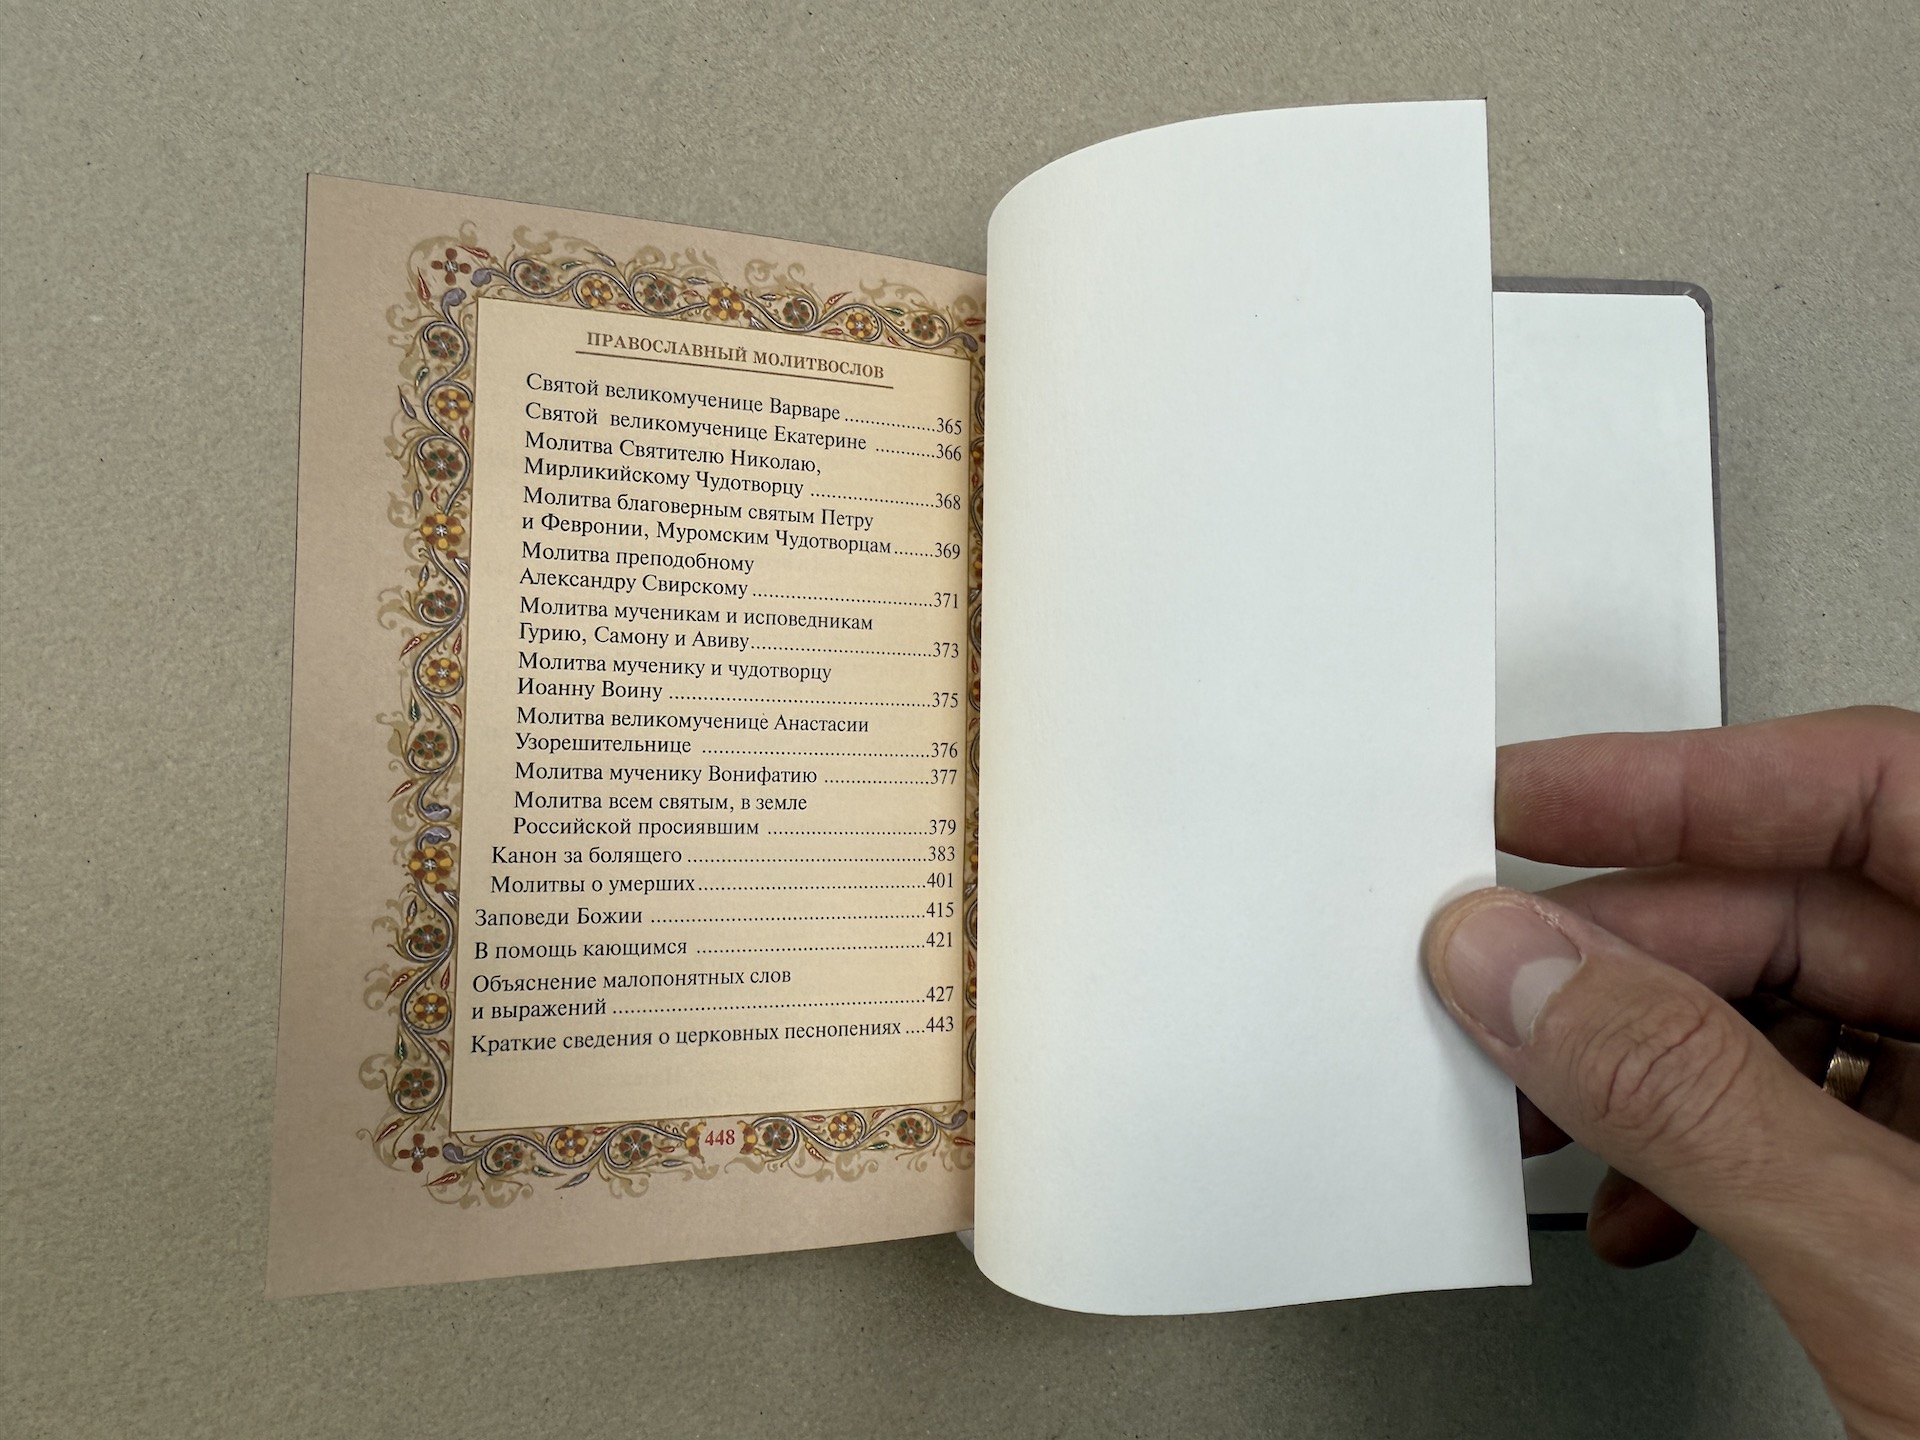 ПРАВОСЛАВНЫЙ МОЛИТВОСЛОВ
Святой великомученице Варваре ..................365
Святой великомученице Екатерине ............366
Молитва Святителю Николаю,
Мирликийскому Чудотворцу .........................368
Молитва благоверным святым Петру
и Февронии, Муромским Чудотворцам........369
Молитва преподобному
Александру Свирскому ....................................371
Молитва мученикам и исповедникам
Гурию, Самону и Авиву....................................373
Молитва мученику и чудотворцу
Иоанну Воину ....................................................375
Молитва великомученице Анастасии
Узорешительнице .............................................376
Молитва мученику Вонифатию .....................377
Молитва всем святым, в земле
Российской просиявшим ................................379
Канон за болящего ...............................................383
Молитвы о умерших.............................................401
Заповеди Божии ......................................................415
В помощь кающимся .............................................421
Объяснение малопонятных слов
и выражений ..............................................................427
Краткие сведения о церковных песнопениях ....443
448